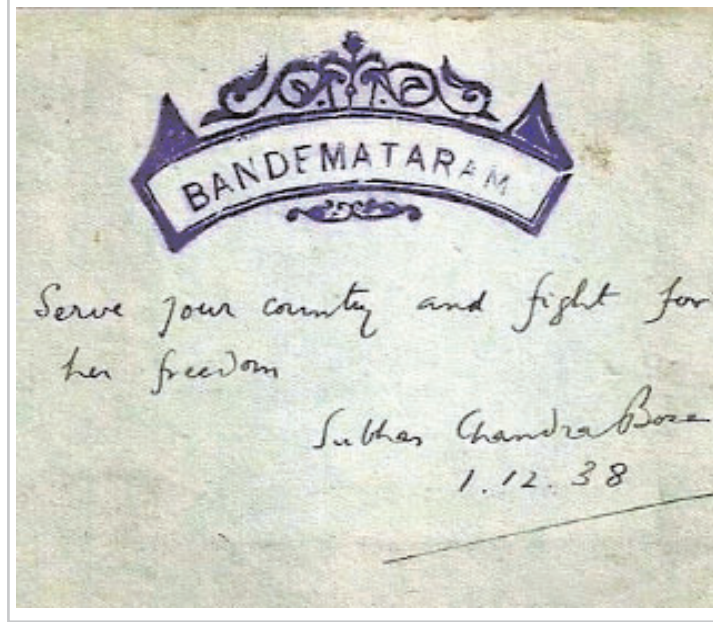 BANDEMATARAM
Serve your country and fight for
her freedom
Subhas Chandra Bose
1.12.38